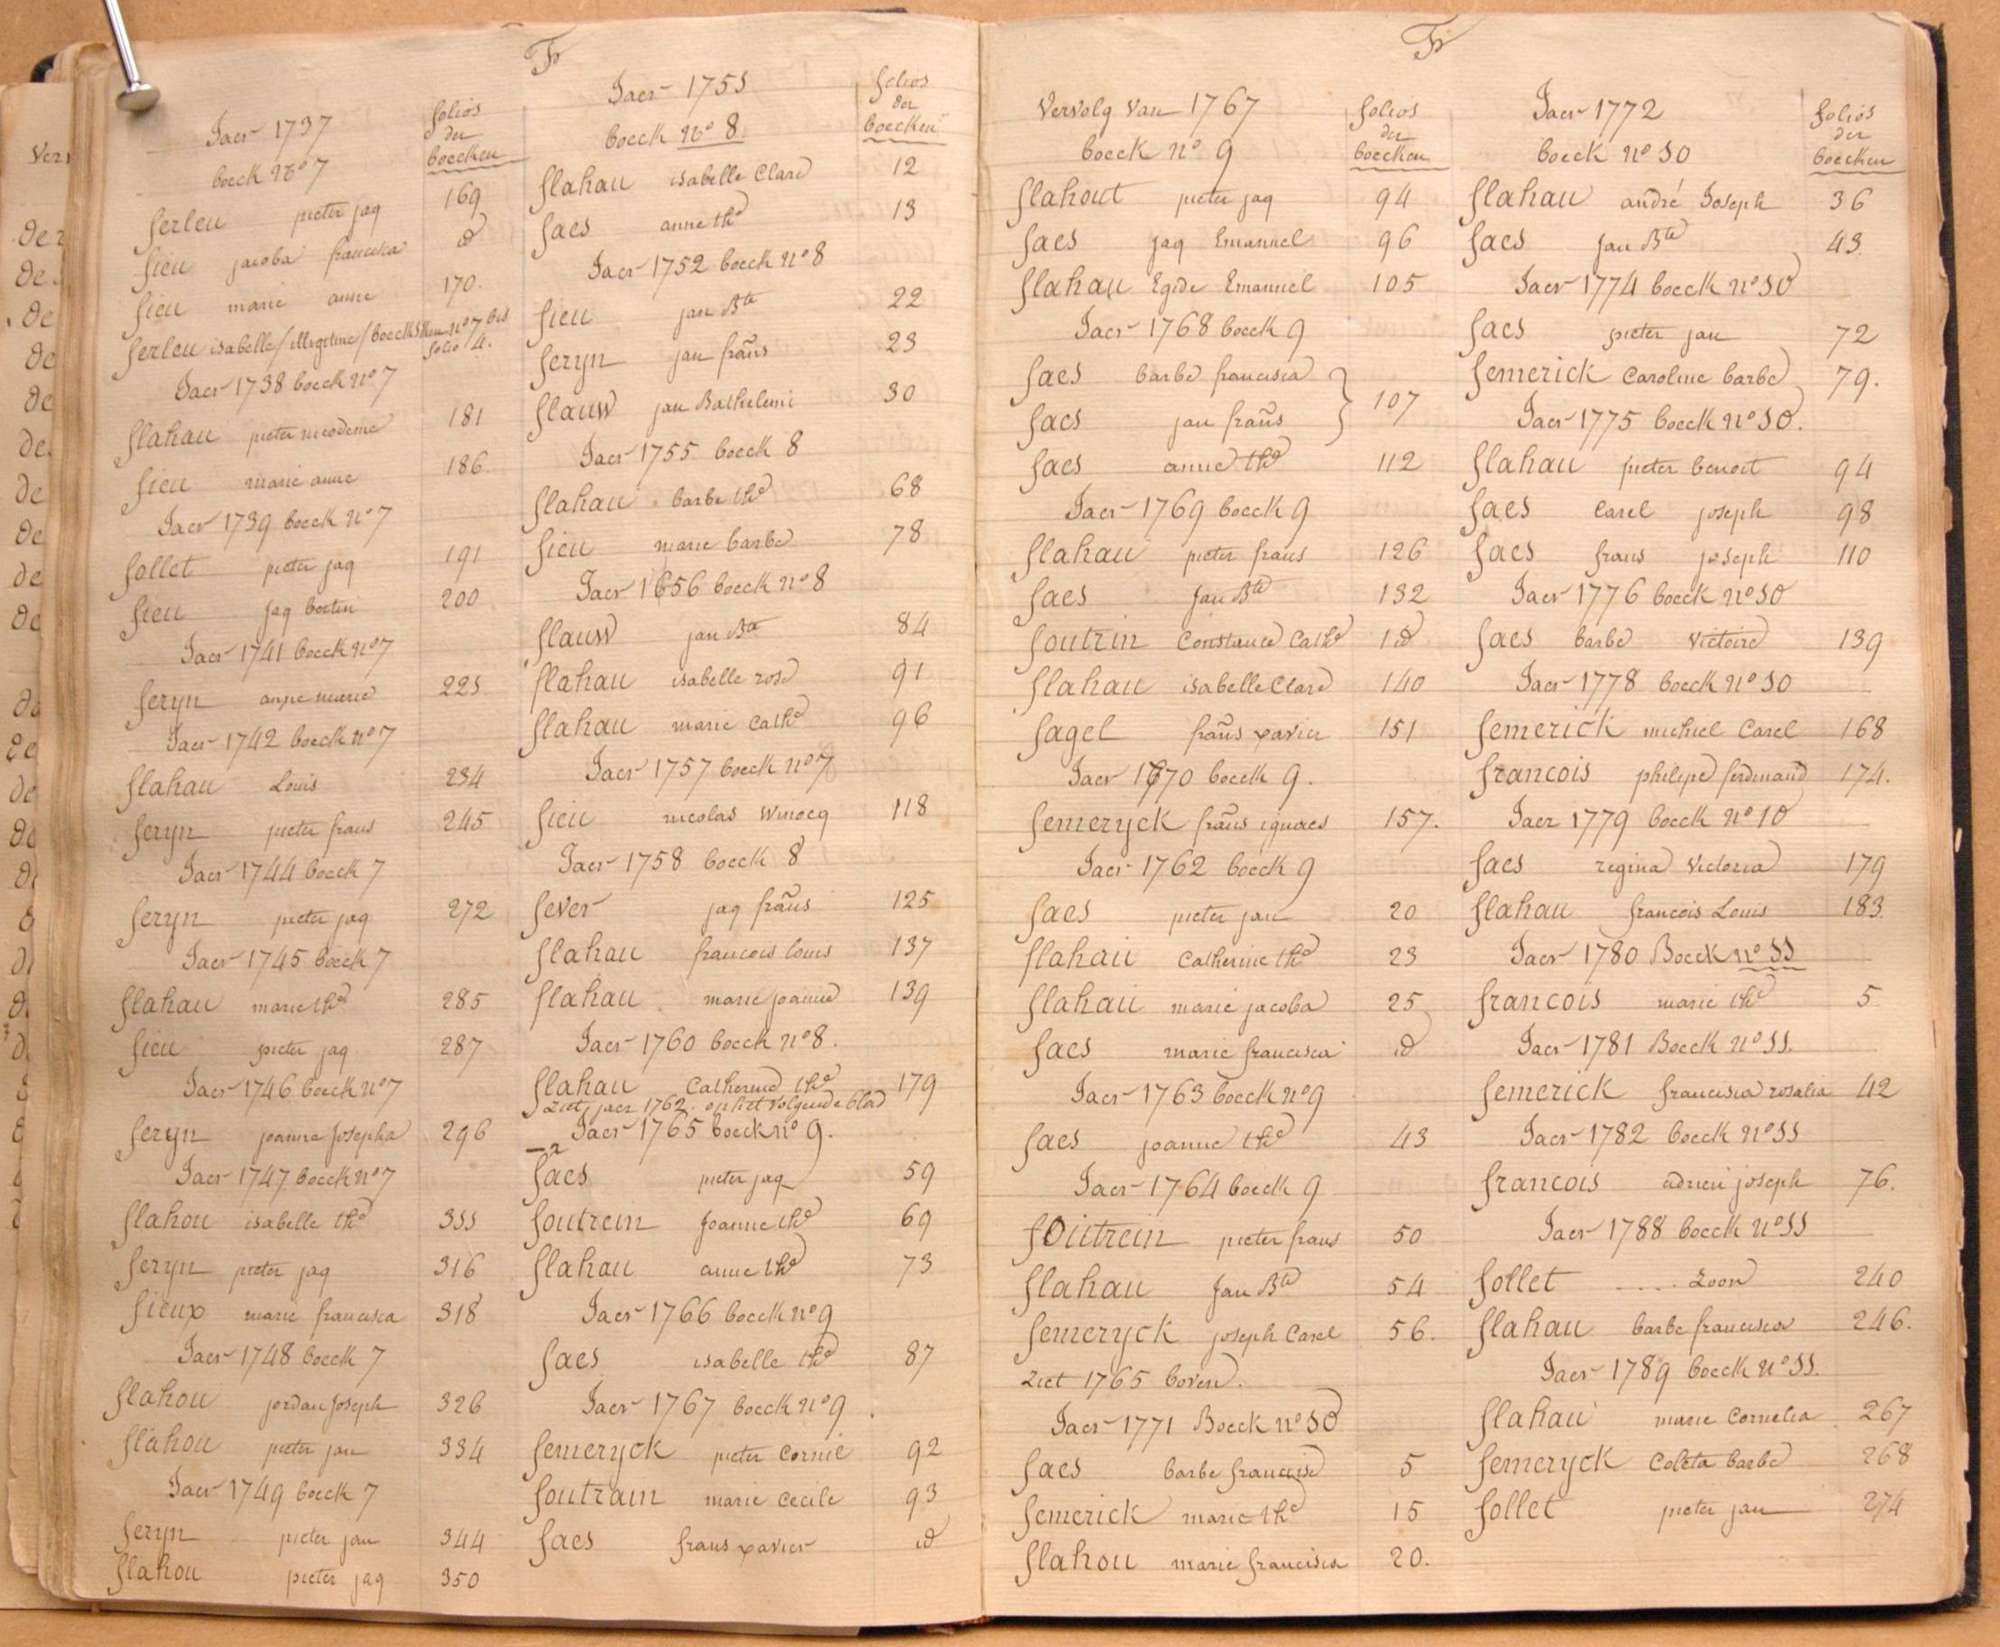 Fr
Jaer 1737
folios
der
boecken
boeck No 7
ferleu pieter jaq 169
fieu jacoba francisca id
fieu marie anne 170.
ferleu isabelle / illegetime / boecksken no 7 bis
folio 4.
Jaer 1738 boeck No 7
flahau pieter nicodeme 181
fieu marie anne 186.
Jaer 1739 boeck No 7
follet pieter jaq 191
fieu jaq bertin 200
Jaer 1741 boeck No 7
feryn anne marie 221
Jaer 1742 boeck No 7
flahau Louis 234
feryn pieter frans 245
Jaer 1744 boeck 7
feryn pieter jaq 272
Jaer 1745 boeck 7
flahau marie the 285
fieu pieter jaq 287
Jaer 1746 boeck No 7
feryn joanna Josepha 296
Jaer 1747 boeck No 7
flahou isabelle the 311
feryn pieter jaq 316
fieux marie francisca 318
Jaer 1748 boeck 7
flahou jordan Joseph 326
flahou pieter jan 334
Jaer 1749 boeck 7
feryn pieter jan 344
flahou pieter jaq 350
Jaer 1751
folios
der
boecken
boeck No 8
flahau isabelle Clare 12
faes anne the 13
Jaer 1752 boeck No 8
fieu jan Bte 22
feryn jan frans 23
flauw jan Bathelemi 30
Jaer 1755 boeck 8
flahau barbe the 68
fieu marie barbe 78
Jaer 1656 boeck No 8
flauw jan Bte 84
flahau isabelle rose 91
flahau marie Cathe 96
Jaer 1757 boeck No 7
fieu nicolas Winocq 118
Jaer 1758 boeck 8
fever jaq frans 125
flahau francois louis 137
flahau marie joanne 139
Jaer 1760 boeck No 8.
flahau Catherine the 179
Ziet jaer 1762. op het volgende blad
Jaer 1765 boeck no 9.
faes pieter jaq 59
foutrein Joanne the 69
flahau anne the 73
Jaer 1766 boeck No 9
faes isabelle the 87
Jaer 1767 boeck No 9
femeryck pieter Cornil 92
foutrain marie Cecile 93
faes frans xavier id
Fr
Vervolg van 1767
folios
der
boecken
boeck no 9
flahout pieter jaq 94
faes jaq Emanuel 96
flahau Egide Emanuel 105
Jaer 1768 boeck 9
faes barbe francisca
107
faes jan frans
faes anne the 112
Jaer 1769 boeck 9
flahau pieter frans 126
faes Jan Bte 132
foutrin Constance Cathe id
flahau isabelle Clare 140
fagel frans xavier 151
Jaer 1770 boeck 9.
femeryck frans ignaes 157.
Jaer 1762 boeck 9
faes pieter jan 20
flahau Catherine the 23
flahau marie jacoba 25
faes marie francisca id
Jaer 1763 boeck no 9
faes joanne the 43
Jaer 1764 boeck 9
foutrein pieter frans 50
flahau Jan Bte 54
femeryck joseph Carel 56.
Ziet 1765 boven.
Jaer 1771 Boeck no 10
faes barbe francise 5
femerick marie the 15
flahou marie francisca 20.
Jaer 1772
folios
der
boecken
boeck no 10
flahau andré Joseph 36
faes Jan Bte 43.
Jaer 1774 boeck no 10
faes pieter jan 72
femerick Caroline barbe 79.
Jaer 1775 boeck No 10.
flahau pieter benoit 94
faes Carel joseph 98
faes frans joseph 110
Jaer 1776 boeck no 10
faes barbe victoire 139
Jaer 1778 boeck No 10
femerick michiel Carel 168
francois philipe ferdinand 174.
Jaer 1779 boeck No 10
faes regina Victoria 179
flahau francois Louis 183
Jaer 1780 Boeck no 11
francois marie the 5
Jaer 1781 Boeck No 11.
femerick francisca rosalia 42
Jaer 1782 boeck No 11
francois adrien joseph 76.
Jaer 1788 boeck no 11
follet .... Zoon 240
flahau barbe francisca 246.
Jaer 1789 boeck no 11.
flahau marie Cornelia 267
femeryck Coleta barbe 268
follet pieter jan 274